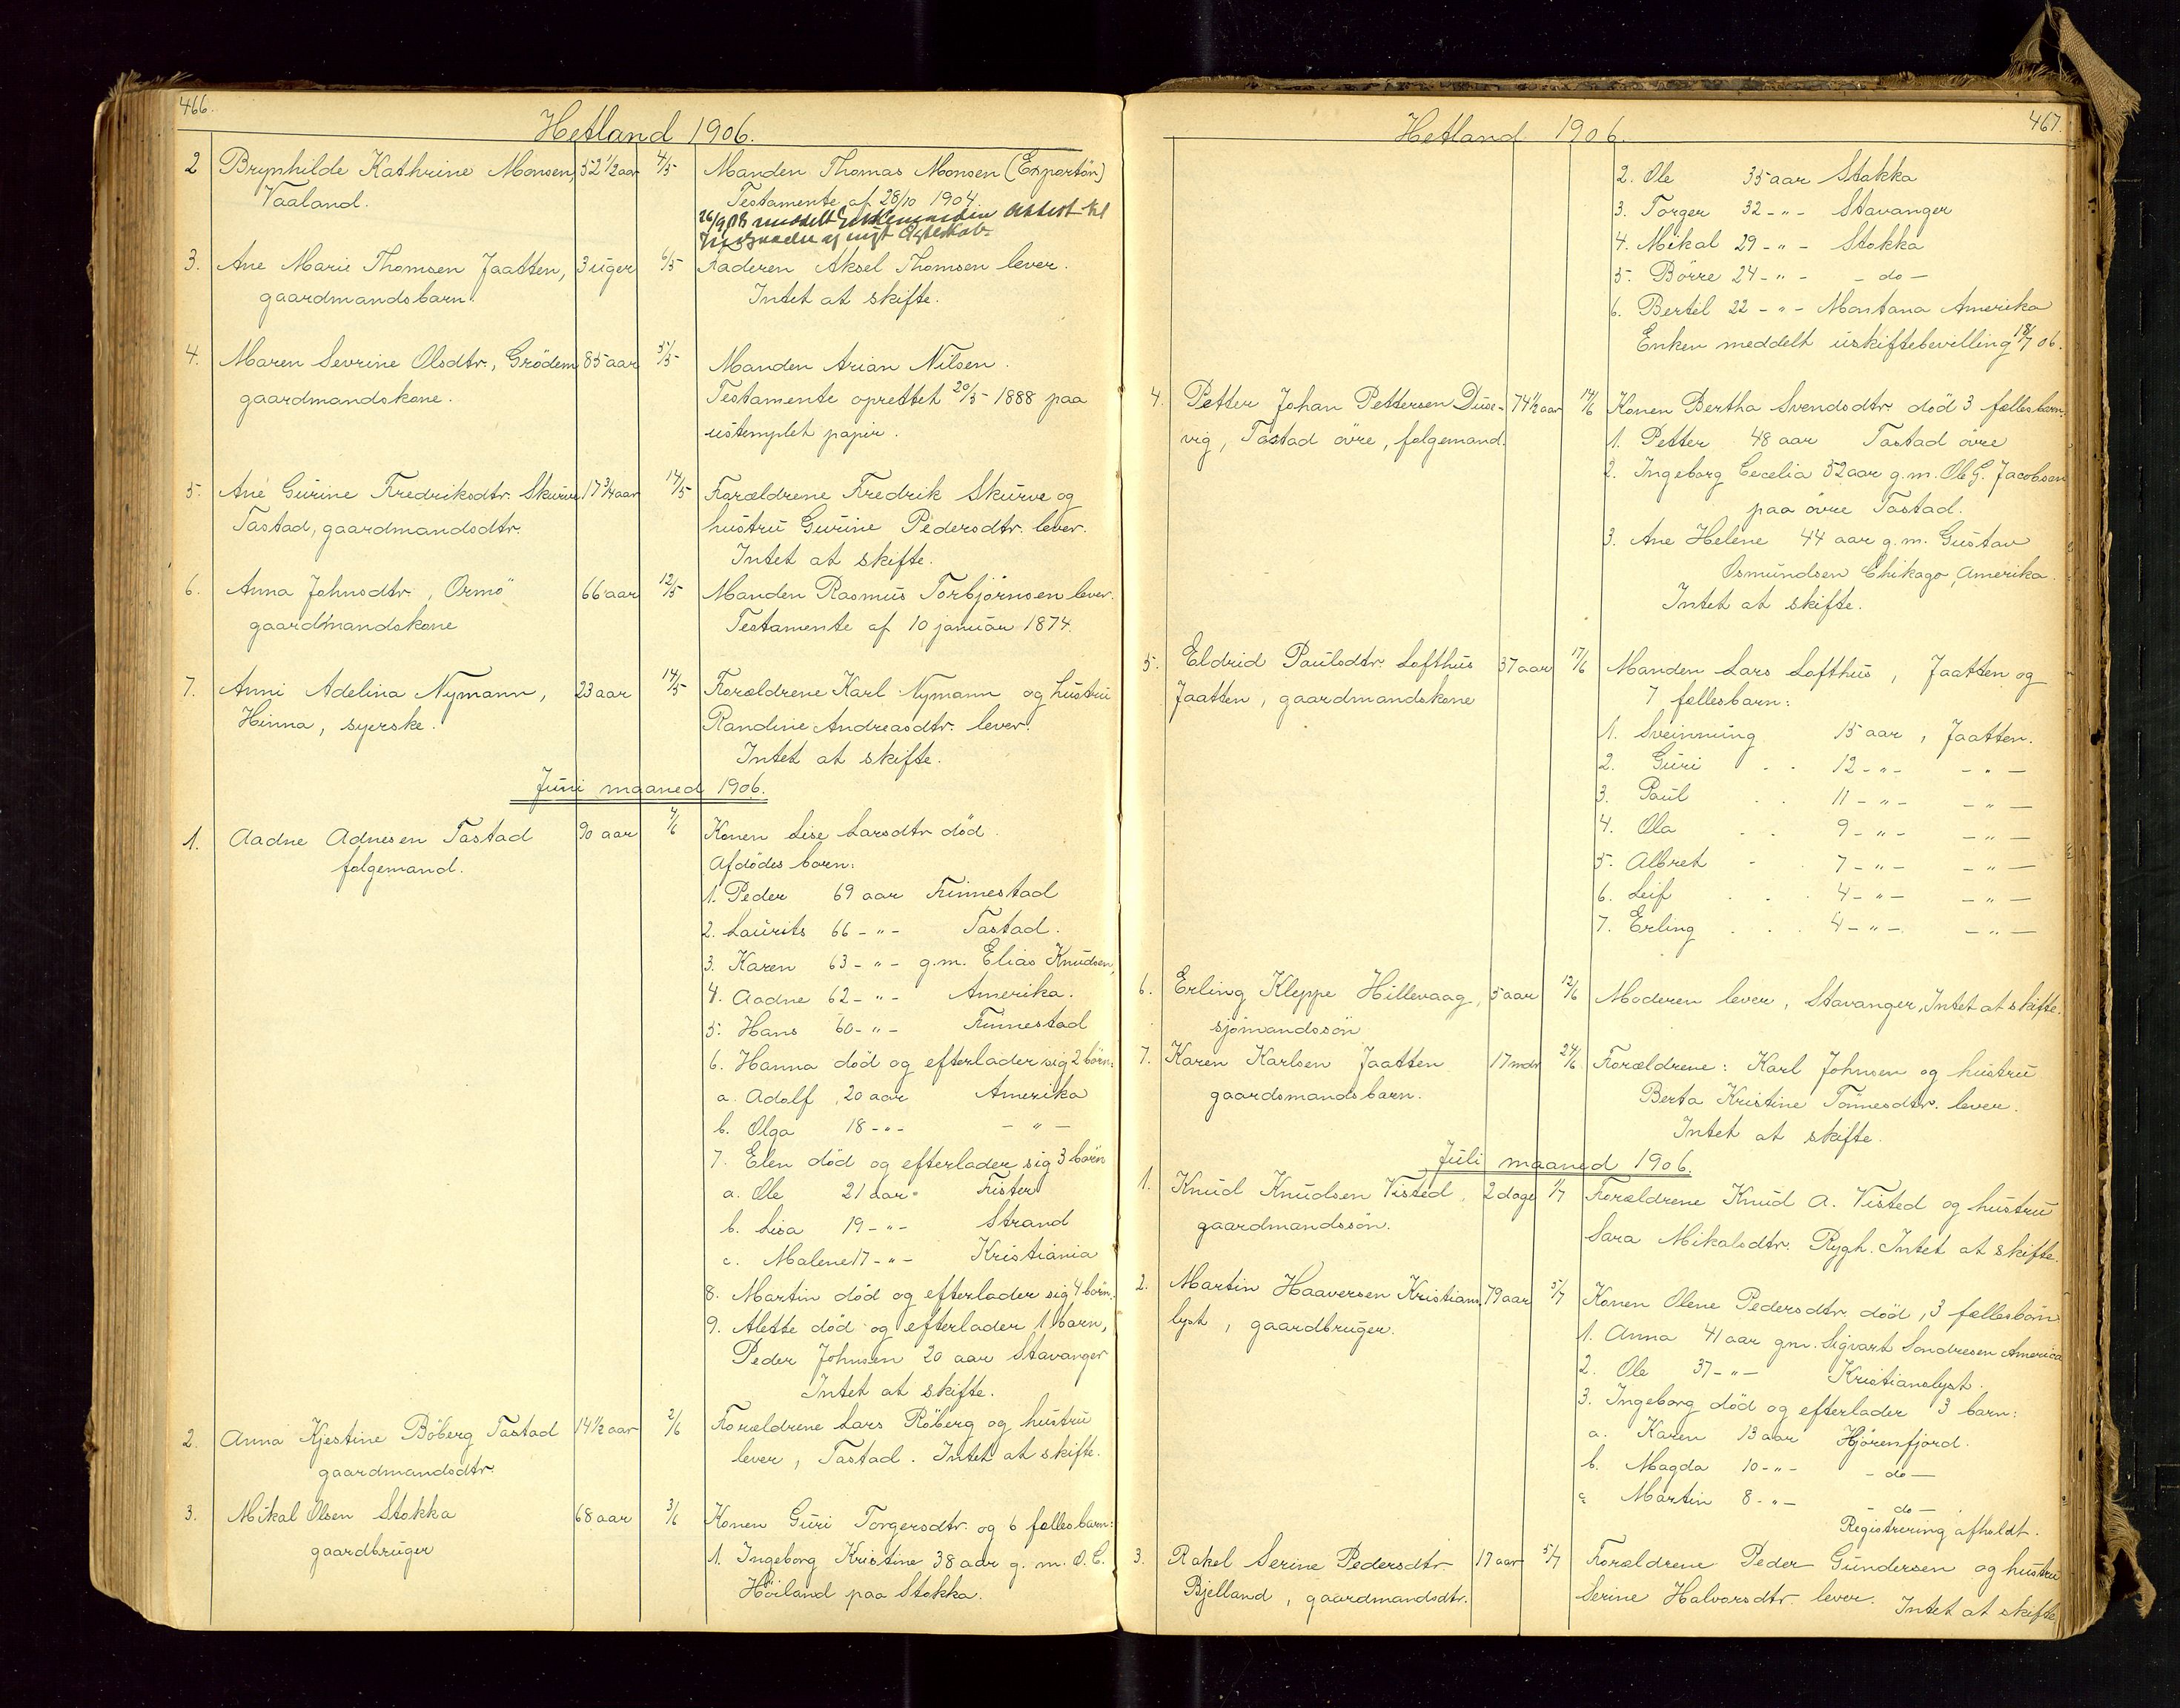 466.
Hetland 1906.
2 Brynhilde Kathrine Monsen, 52 1/2 aar 4/5 Manden Thomas Monsen (Exportön)
Vaaland. Testamente af 28/10 1904.
26/9 08 meddelt Enkemanden Attest til
Indgaaelse af nyt Egteskab.
3. Ane Marie Thomsen Jaatten, 3 uger 6/5 Faderen Aksel Thomsen lever.
gaardmandsbarn. Intet at skifte.
4. Maren Sevrine Olsdtr., Grödem 85 aar 5/5 Manden Arian Nilsen.
gaardmandskone. Testamente oprettet 20/5 1888 paa
ustemplet papir.
5. Ane Gurine Fredriksdtr. Skurve 17 3/4 aar 14/5 Forældrene Fredrik Skurve og
Tastad, gaardmandsdtr. hustru Gurine Pedersdtr. lever.
Intet at skifte.
6. Anna Johnsdtr., Ormö 66 aar 12/5 Manden Rasmus Torbjörnsen lever.
gaardmandskone Testamente af 10 januar 1874.
7. Anni Adelina Nymann, 23 aar 14/5 Forældrene Karl Nymann og hustru
Hinna, syerske. Randine Andreasdtr. lever.
Intet at skifte.
Juni maaned 1906.
1. Aadne Adnesen Tastad 90 aar 7/6 Konen Lise Larsdtr död.
folgemand. Afdödes barn:
1. Peder 69 aar Finnestad
2. Laurits 66 - " - Tastad.
3. Karen 63 - " - g.m. Elias Knudsen,
4. Aadne 62 - " - Amerika.
5. Hans 60 - " - Finnestad
6. Hanna död og efterlader sig 2 börn:
a. Adolf 20 aar Amerika
b. Olga 18 - " - - " -
7. Elen död og efterlader sig 3 börn
a. Ole 21 aar Fister
b. Lisa 19 - " - Strand
c. Malene 17 - " - Kristiania
8. Martin död og efterlader sig 4 börn.
9. Alette död og efterlader 1 barn,
Peder Johnsen 20 aar Stavanger
Intet at skifte.
2. Anna Kjestine Böberg Tastad 14 1/2 aar 2/6 Forældrene Lars Röberg og hustru
gaardmandsdtr. lever, Tastad. Intet at skifte.
3. Mikal Olsen Stokka 68 aar 3/6 Konen Guri Torgersdtr. og 6 fællesbarn:
gaardbruger 1. Ingeborg Kristine 38 aar g. m. O. C.
Höiland paa Stokka.
467.
Hetland 1906.
2. Ole 35 aar Stokka
3. Torger 32 - " - Stavanger
4. Mikal 29 - " - Stokka
5. Börre 24 - " - - do -
6. Bertil 22 - " - Montana Amerika
Enken meddelt uskiftebevilling 18/7 06.
4. Petter Johan Pettersen Duse- 74 1/2 aar 14/6 Konen Bertha Svendsdtr död 3 fællesbarn:
vig, Tastad övre, folgemand. 1. Petter 48 aar Tastad övre
2. Ingeborg Cecelia 52 aar g.m. Ole G. Jacobsen
paa övre Tastad.
3. Ane Helene 44 aar g.m. Gustav
Osmundsen Chikago, Amerika.
Intet at skifte.
5. Eldrid Paulsdtr. Lofthus 37 aar 17/6 Manden Lars Lofthus, Jaatten og
Jaatten, gaardmandskone 7 fællesbarn:
1. Sveinnung 15 aar, Jaatten.
2. Guri 12 - " - - " -
3. Paul 11 - " - - " -
4. Ola 9 - " - - " -
5. Albret 7 - " - - " -
6. Leif 4 - " - - " -
7. Erling 4 - " - - " -
6. Erling Kleppe Hillevaag, 5 aar 12/6 Moderen lever, Stavanger, Intet at skifte.
sjömandssön
7. Karen Karlsen Jaatten 17 mdr 24/6 Forældrene: Karl Johnsen og hustru
gaardsmandsbarn. Berta Kristine Tönnesdtr. lever.
Intet at skifte.
Juli maaned 1906.
1. Knud Knudsen Visted, 2 dage 1/7 Forældrene Knud A. Visted og hustru
gaardmandssön. Sara Mikalsdtr. Rygh. Intet at skifte.
2. Martin Haaversen Kristians- 79 aar 5/7 Konen Olene Pedersdtr död, 3 fællesbörn
lyst, gaardbruger. 1. Anna 41 aar gm. Sigvart Sondresen America
2. Ole 37 - " - Kristianslyst.
3. Ingeborg död og efterlader 3 barn:
a. Karen 13 aar Hjörenfjord.
b. Magda 10 - " - - do -
c Martin 8 - " - - do -
Registrering afholdt.
3. Rakel Serine Pedersdtr. 17 aar 5/7 Forældrene Peder Gundersen og hustru
Bjelland, gaardmandsdtr. Serine Halvorsdtr. lever. Intet at skifte